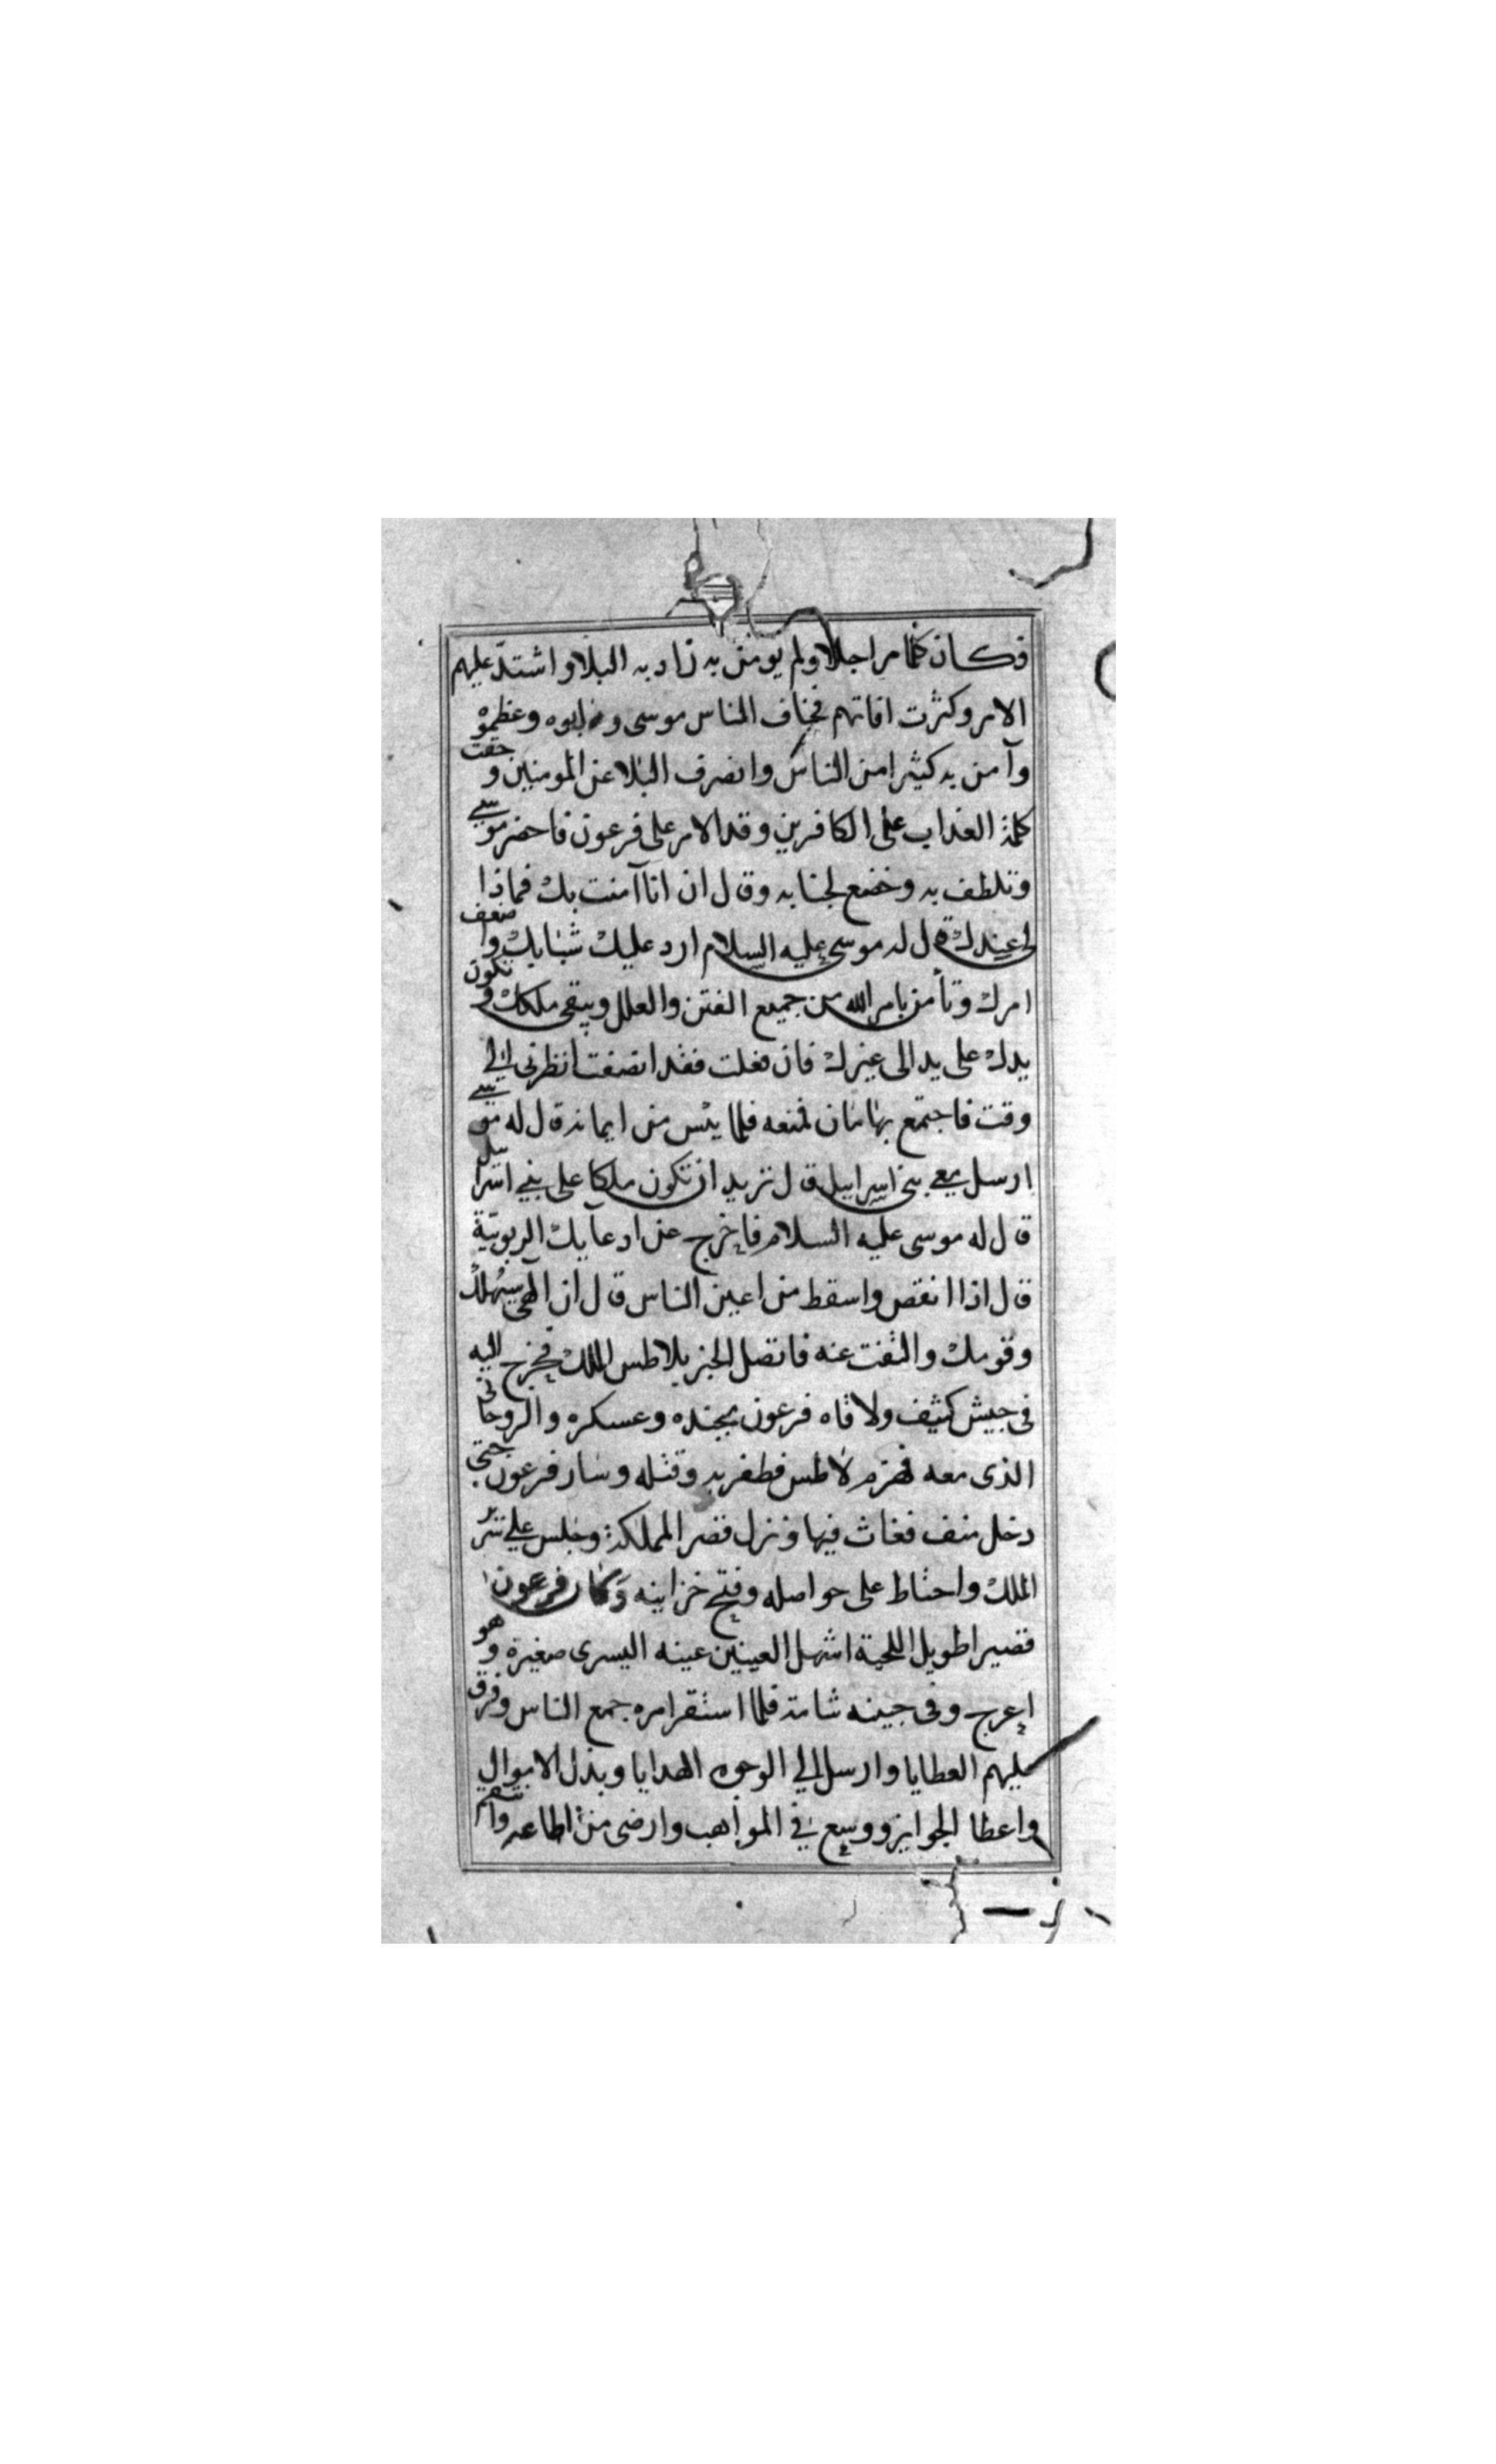 فكان كلما مر اجلا ولم يومن به زاد به البلا واشتد عليهم
الامر وكثرت افاتهم فخاف الناس موسى وهابوه وعظموه
وآمن به كثيرا من الناس وانصرف البلا عن المومنين وحقت
كلمة العذاب على الكافرين وقد الامر على فرعون فاحضر موسى
وتلطف به وخضع لجنابه وقال ان انا آمنت بك فماذا
لى عندك قال له موسى عليه السلام ارد عليك شبابك واضعف
امرك وتأمن بامر الله من جميع الفتن والعلل ويبقى ملكك وتكون
يدك على يد الى غيرك فان فعلت فقد انصفت انظرنى الى
وقت فاجتمع بهامان فمنعه فلما يئس من ايمانه قال له موسى
ارسل معى بنى اسراييل قال تريد ان تكون ملكا على بنى اسراييل
قال له موسى عليه السلام فاخرج عن ادعايك الربوبية
قال اذا انقص واسقط من اعين الناس قال ان الهى سيهلك
وقومك والتفت عنه فاتصل الخبر بلاطس الملك فخرج اليه
فى جيش كثيف ولاقاه فرعون بجنده وعسكره والروحانى
الذى معه فهزم لاطس فظفر به وقتله وسار فرعون حتى
دخل منف فعاث فيها ونزل قصر المملكة وجلس على سرير
الملك واحتاط على حواصله وفتح خزاينه وكان فرعون
قصيرا طويل اللحية اشهل العينين عينه اليسرى صغيرة وهو
اعرج وفى جبينه شامة فلما استقر امره جمع الناس وفرق
عليهم العطايا وارسل الى الوجوه الهدايا وبذل الاموال
واعطا الجوايز ووسع فى المواهب وارضى من اطاعه وانتقم